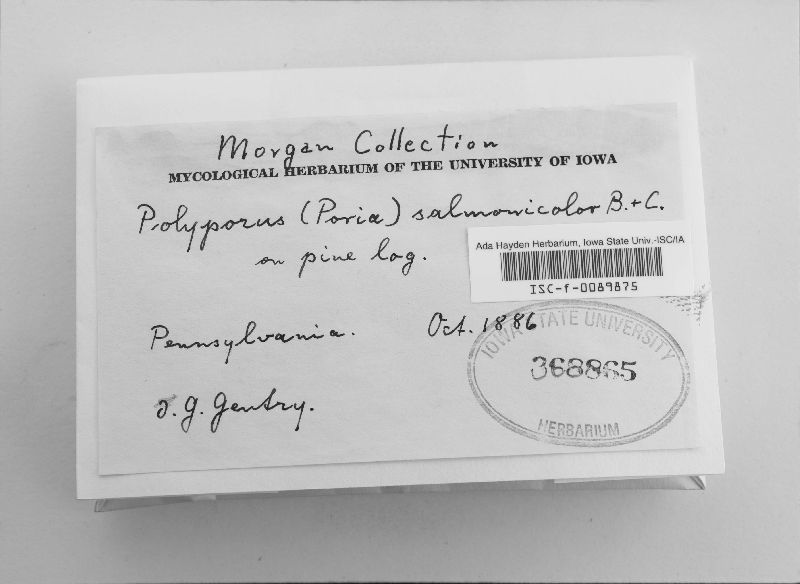 Morgan Collection
MYCOLOGICAL HERBARIUM OF THE UNIVERSITY OF IOWA
Polyporus (Poria) salmonicolor B. + C.
on pine log.
Ada Hayden Herbarium, Iowa State Univ.-ISC/IA
ISC-f-0089875
Pennsylvania. Oct. 1886
J. G. Gentry.
IOWA STATE UNIVERSITY
368865
HERBARIUM